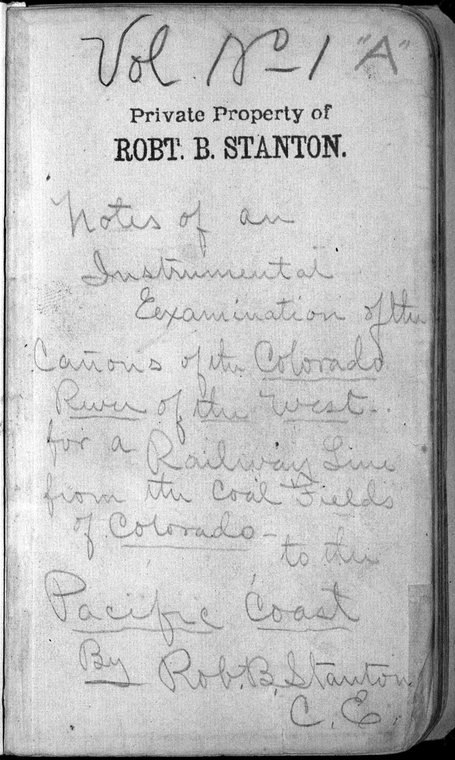 Vol. No 1 "A"
Private Property of
ROBT. B. STANTON.
Notes of an
Instrumental
Eexamination of the
Cañons of the Colorado
River of the West -
for a Railway Line
from the Coal Fields
of Colorado -
to the
Pacific Coast
By Rob. B. Stanton
C. E.